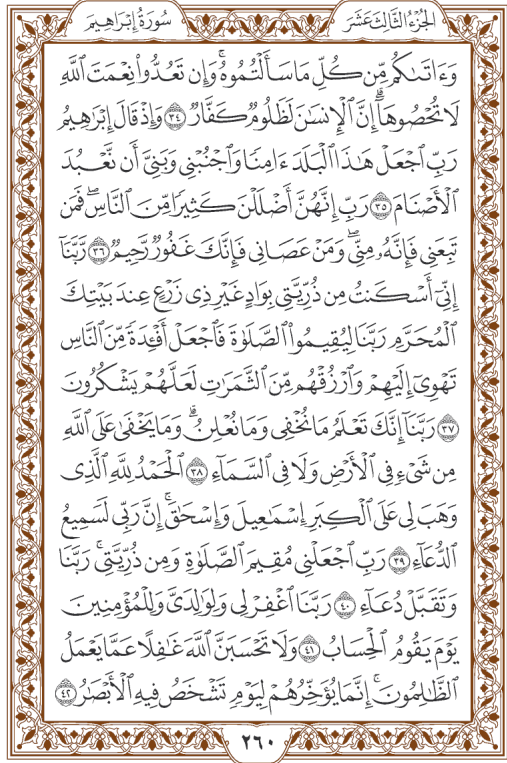 الجُزْءُ الثَّالِثَ عَشَرَ
سُورَةُ إِبْرَاهِيمَ
وَءَاتَىٰكُم مِّن كُلِّ مَا سَأَلْتُمُوهُۚ وَإِن تَعُدُّواْ نِعْمَتَ ٱللَّهِ
لَا تُحْصُوهَآۗ إِنَّ ٱلْإِنسَٰنَ لَظَلُومٌ كَفَّارٌ ٣٤ وَإِذْ قَالَ إِبْرَٰهِيمُ
رَبِّ ٱجْعَلْ هَٰذَا ٱلْبَلَدَ ءَامِنًا وَٱجْنُبْنِى وَبَنِىَّ أَن نَّعْبُدَ
ٱلْأَصْنَامَ ٣٥ رَبِّ إِنَّهُنَّ أَضْلَلْنَ كَثِيرًا مِّنَ ٱلنَّاسِۖ فَمَن
تَبِعَنِى فَإِنَّهُۥ مِنِّىۖ وَمَنْ عَصَانِى فَإِنَّكَ غَفُورٌ رَّحِيمٌ ٣٦ رَّبَّنَآ
إِنِّىٓ أَسْكَنتُ مِن ذُرِّيَّتِى بِوَادٍ غَيْرِ ذِى زَرْعٍ عِندَ بَيْتِكَ
ٱلْمُحَرَّمِ رَبَّنَا لِيُقِيمُواْ ٱلصَّلَوٰةَ فَٱجْعَلْ أَفْـِٔدَةً مِّنَ ٱلنَّاسِ
تَهْوِىٓ إِلَيْهِمْ وَٱرْزُقْهُم مِّنَ ٱلثَّمَرَٰتِ لَعَلَّهُمْ يَشْكُرُونَ
٣٧ رَبَّنَآ إِنَّكَ تَعْلَمُ مَا نُخْفِى وَمَا نُعْلِنُۗ وَمَا يَخْفَىٰ عَلَى ٱللَّهِ
مِن شَىْءٍ فِى ٱلْأَرْضِ وَلَا فِى ٱلسَّمَآءِ ٣٨ ٱلْحَمْدُ لِلَّهِ ٱلَّذِى
وَهَبَ لِى عَلَى ٱلْكِبَرِ إِسْمَٰعِيلَ وَإِسْحَٰقَۚ إِنَّ رَبِّى لَسَمِيعُ
ٱلدُّعَآءِ ٣٩ رَبِّ ٱجْعَلْنِى مُقِيمَ ٱلصَّلَوٰةِ وَمِن ذُرِّيَّتِىۚ رَبَّنَا
وَتَقَبَّلْ دُعَآءِ ٤٠ رَبَّنَا ٱغْفِرْ لِى وَلِوَٰلِدَىَّ وَلِلْمُؤْمِنِينَ
يَوْمَ يَقُومُ ٱلْحِسَابُ ٤١ وَلَا تَحْسَبَنَّ ٱللَّهَ غَٰفِلًا عَمَّا يَعْمَلُ
ٱلظَّٰلِمُونَۚ إِنَّمَا يُؤَخِّرُهُمْ لِيَوْمٍ تَشْخَصُ فِيهِ ٱلْأَبْصَٰرُ ٤٢
٢٦٠